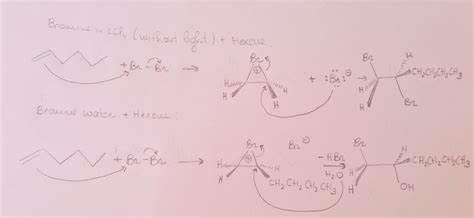 Bromine in CCl4 (without light) + Hexene
+ Br - Br → Br ⊕ H H H + :Br: ⊖ → Br H CH2CH2CH2CH3 H H Br
Bromine water + Hexene:
+ Br - Br → Br ⊕ H H H CH2CH2CH2CH3 Br ⊖ - HBr → H2O Br H CH2CH2CH2CH3 H H OH